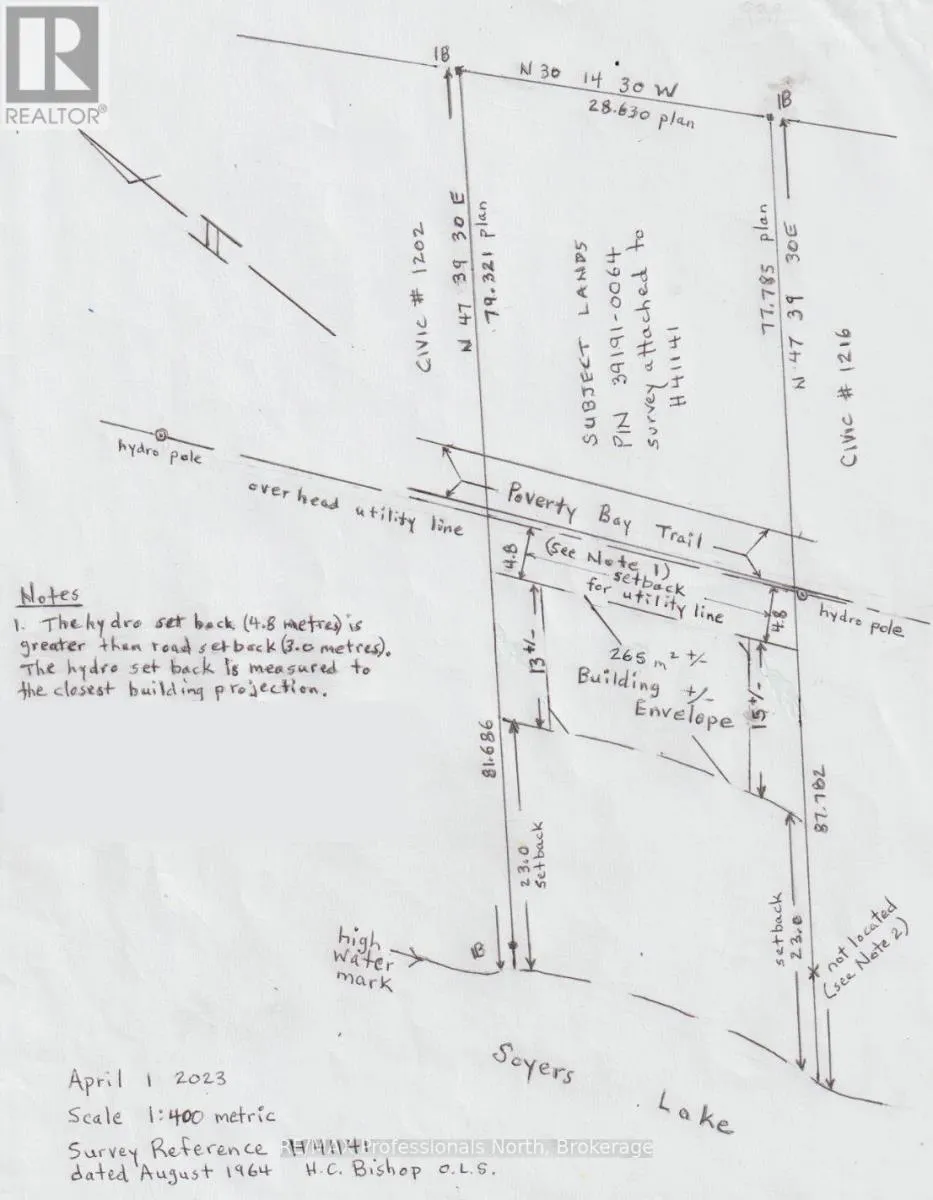 REALTOR®
IB
N 30 14 30 W
28.630 plan
IB
CIVIC # 1202
N 47 39 30 E
79.321 plan
SUBJECT LANDS
PIN 39191-0064
survey attached to
H41141
77.785 plan
N 47 39 30E
CIVIC # 1216
hydro pole
overhead utility line
Poverty Bay Trail
(see Note 1)
setback
for utility line
4.8
4.8
hydro pole
Notes
1. The hydro set back (4.8 metres) is
greater than road setback (3.0 metres).
The hydro set back is measured to
the closest building projection.
13 +/-
265 m² +/-
Building +/-
Envelope
15 +/-
81.686
87.782
23.0
setback
setback
23.0
high
water
mark
IB
not located
(see Note 2)
Soyers
Lake
April 1 2023
Scale 1:400 metric
Survey Reference H41141
RE/MAX Professionals North, Brokerage
dated August 1964 H.C. Bishop O.L.S.